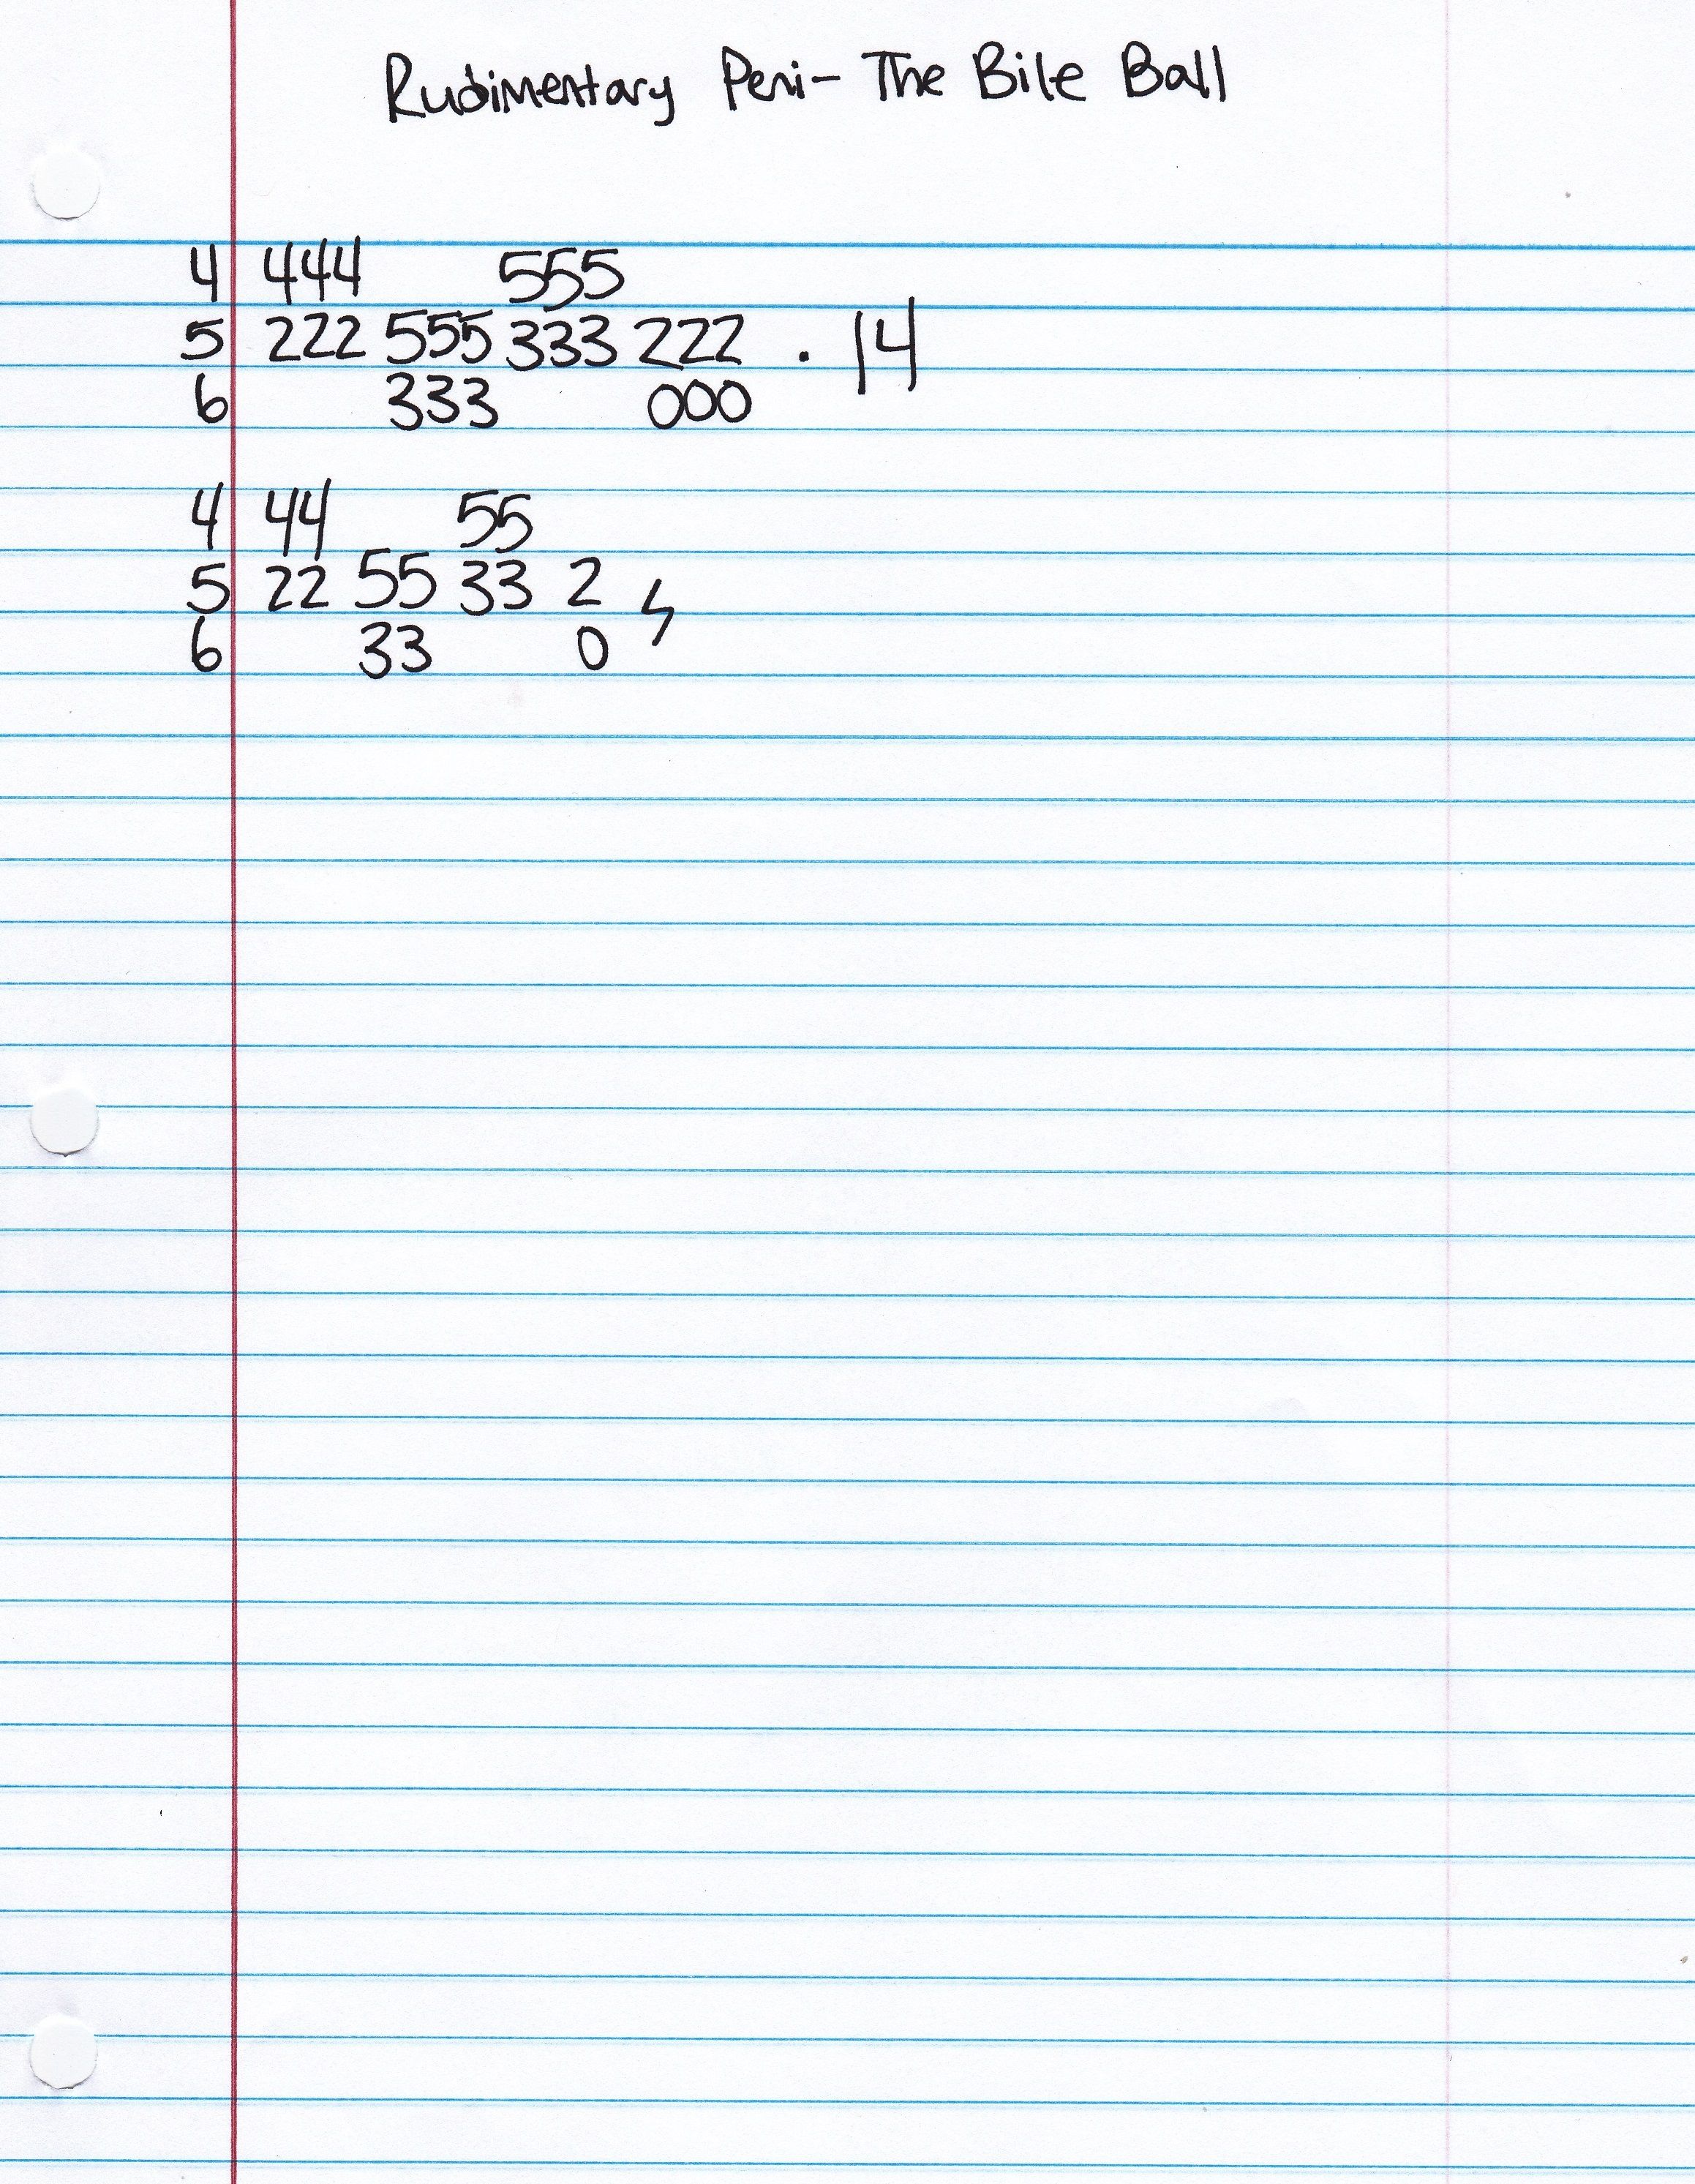 Rudimentary Peni- The Bile Ball
4 444 555
5 222 555 333 222 . 14
6 333 000
4 44 55
5 22 55 33 2
6 33 0